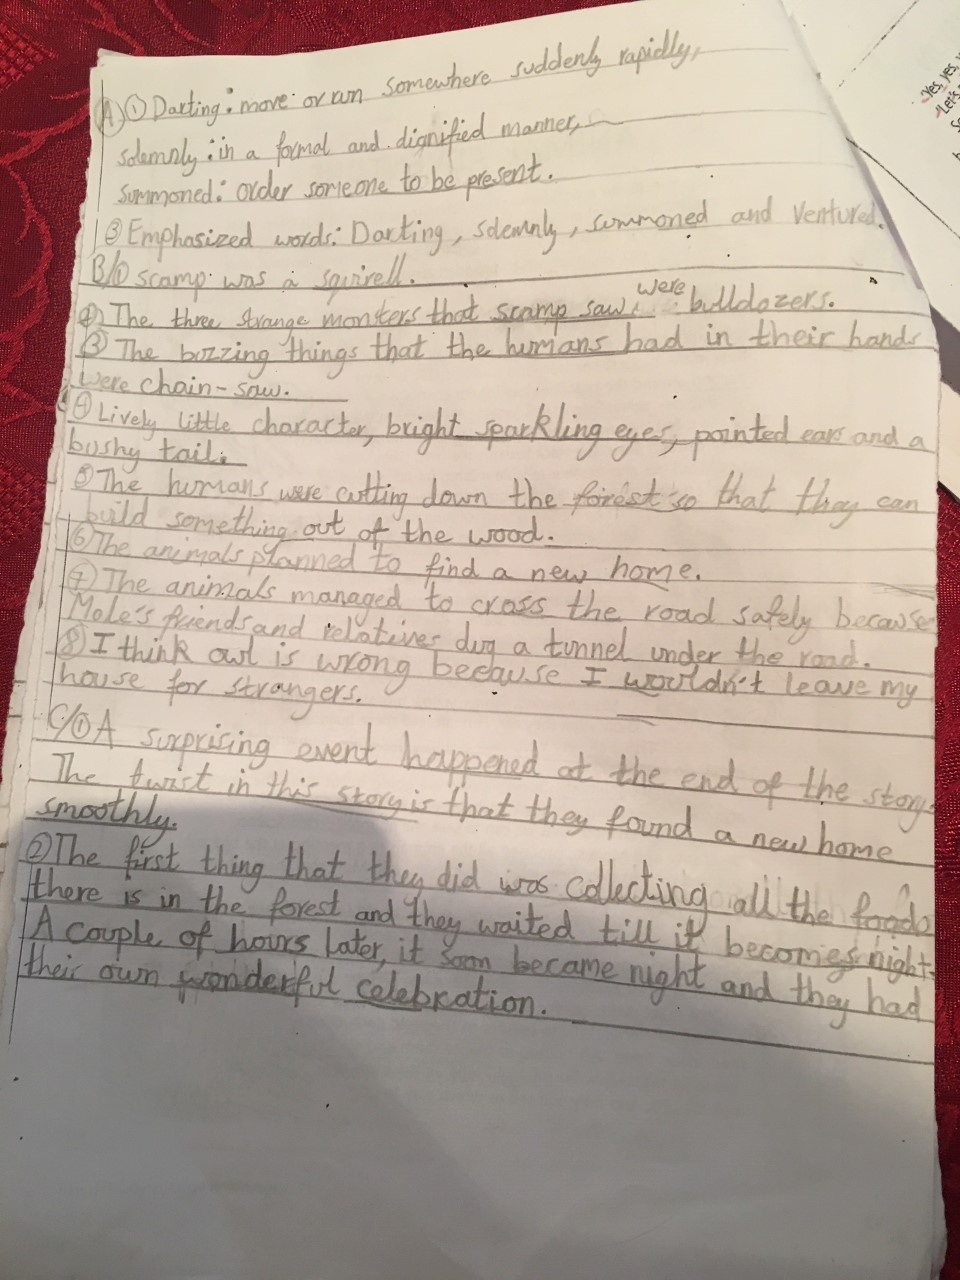 A) ① Darting: move or run somewhere suddenly rapidly,
solemnly: in a formal and dignified manner,
Summoned: order someone to be present.
③ Emphasized words: Darting, solemnly, summoned and Ventured.
B/① scamp was a squirell.
② The three strange monsters that scamp saw were bulldozers.
③ The buzzing things that the humans had in their hands
were chain-saw.
④ Lively little character, bright sparkling eyes, pointed ears and a
bushy tail.
⑤ The humans were cutting down the forest so that they can
build something out of the wood.
⑥ The animals planned to find a new home.
⑦ The animals managed to cross the road safely because
Mole's friends and relatives dug a tunnel under the road.
⑧ I think owl is wrong because I wouldn't leave my
house for strangers.
C/① A surprising event happened at the end of the story.
The twist in this story is that they found a new home
smoothly.
② The first thing that they did was collecting all the foods
there is in the forest and they waited till it becomes night.
A couple of hours later, it soon became night and they had
their own wonderful celebration.
"Yes, yes,
"Let's